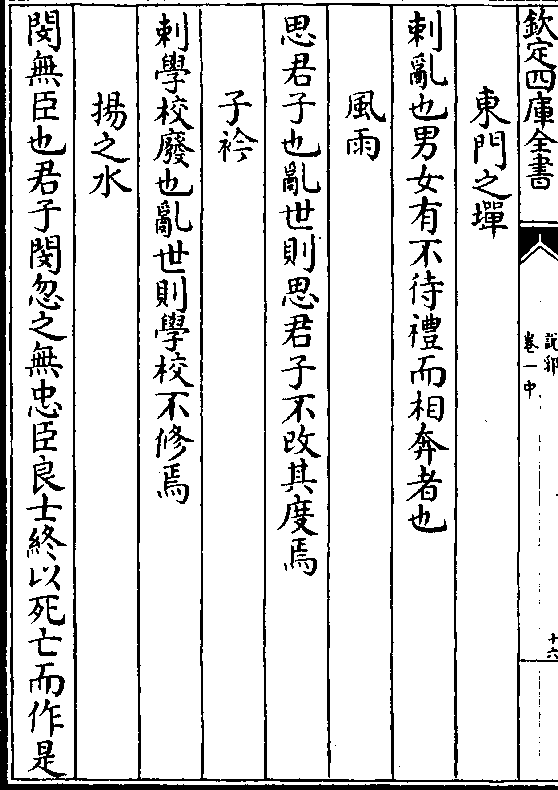 欽定四庫全書
說郛
卷一中
十六
東門之墠
刺亂也男女有不待禮而相奔者也
風雨
思君子也亂世則思君子不改其度焉
子衿
刺學校廢也亂世則學校不修焉
揚之水
閔無臣也君子閔忽之無忠臣良士終以死亡而作是